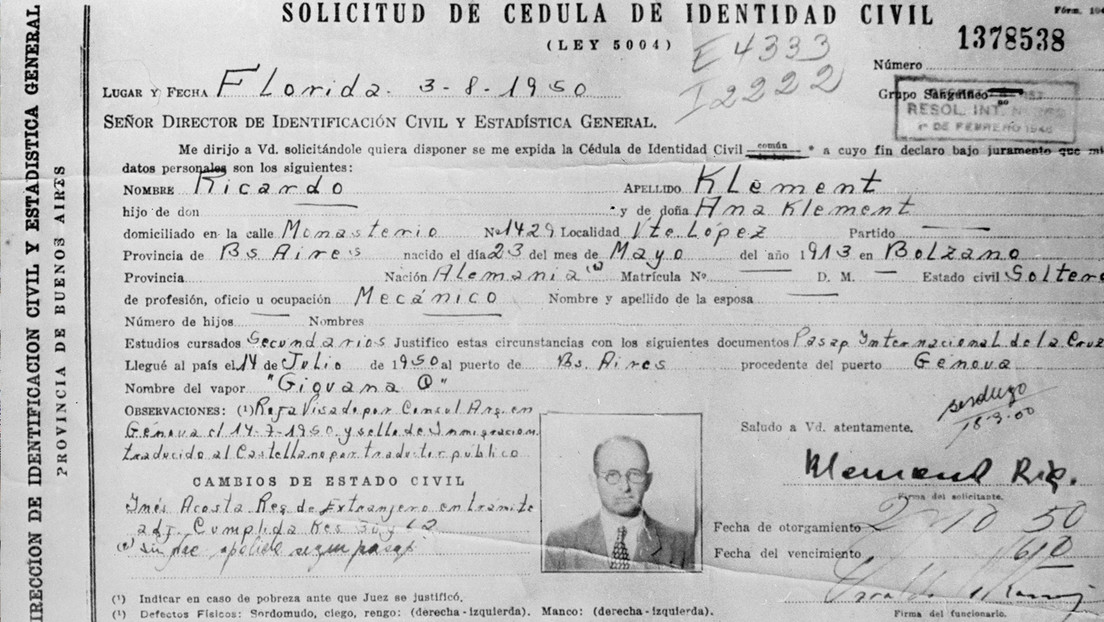 DIRECCION DE IDENTIFICACION CIVIL Y ESTADISTICA GENERAL
PROVINCIA DE BUENOS AIRES
SOLICITUD DE CEDULA DE IDENTIDAD CIVIL
(LEY 5004)
Fórm.
E 4333
I 2222
1378538
Número
Grupo Sanguíneo
RESOL. INT.
1º DE FEBRERO 1948
LUGAR Y FECHA Florida. 3-8-1950
SEÑOR DIRECTOR DE IDENTIFICACIÓN CIVIL Y ESTADÍSTICA GENERAL.
Me dirijo a Vd. solicitándole quiera disponer se me expida la Cédula de Identidad Civil común * a cuyo fin declaro bajo juramento que mi
datos personales son los siguientes:
NOMBRE Ricardo APELLIDO Klement
hijo de don y de doña Ana Klement
domiciliado en la calle Monasterio Nº 1429 Localidad Vte. López Partido
Provincia de Bs Aires nacido el día 23 del mes de Mayo del año 1913 en Bolzano
Provincia Nación Alemania Matrícula Nº. D. M. Estado civil Soltero
de profesión, oficio u ocupación Mecánico Nombre y apellido de la esposa
Número de hijos Nombres
Estudios cursados Secundarios Justifico estas circunstancias con los siguientes documentos Pasap. Internacional de la Cruz
Llegué al país el 14 de Julio de 1950 al puerto de Bs. Aires procedente del puerto Génova
Nombre del vapor "Giovana C"
OBSERVACIONES: (1) Roja Visado por Consul Arg. en
Génova el 14-7-1950 y sello de Inmigracion
traducido al Castellano por traductor público
Saludo a Vd. atentamente.
CAMBIOS DE ESTADO CIVIL
Inés Acosta Reg. de Extranjero en tramite
Firma del solicitante.
Fecha de otorgamiento 2 10 50
Fecha del vencimiento
(1) Indicar en caso de pobreza ante que Juez se justificó.
(1) Defectos Físicos: Sordomudo, ciego, rengo: (derecha-izquierda). Manco: (derecha-izquierda).
Firma del funcionario.